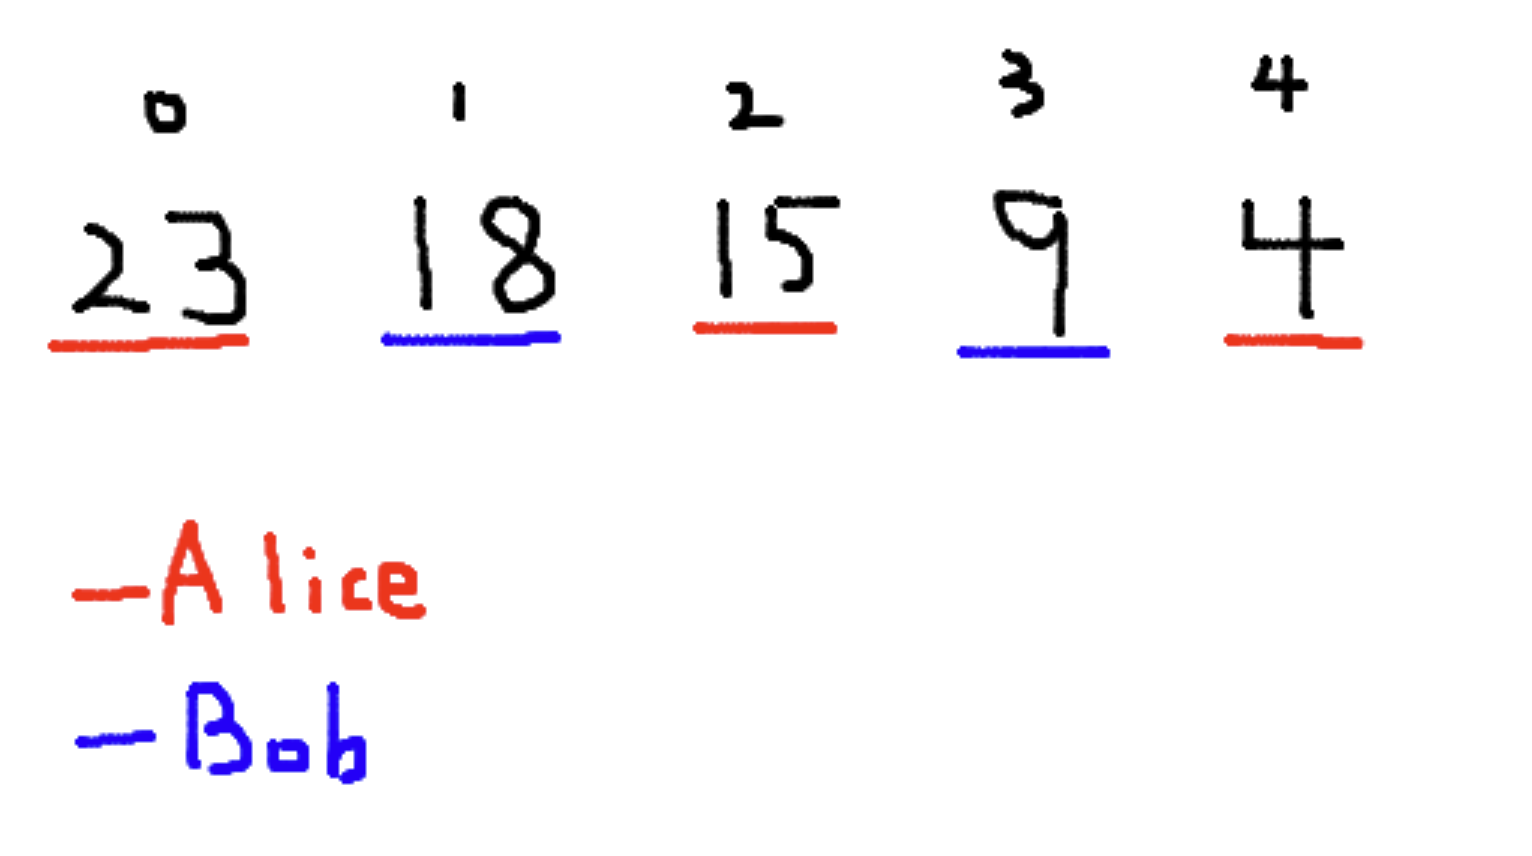 0 1 2 3 4
23 18 15 9 4
-Alice
-Bob